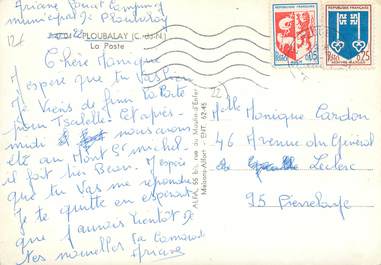 Ariane Jouet Camping
municipal de Ploubalay
PLOUBALAY (C.-du-N.)
La Poste
Chère Monique
J'espère que tu vas bien
Je viens de finir la Porte
pour Isabelle. Cet après-
midi nous avons
été au Mont St michel
il fait très Beau. J'espère
que tu Vas me répondre
Je te quitte en espérant
que j'aurais bientôt de
tes nouvelles ta camarade
Ariane
ALFA, 55 bis, rue du Moulin-d'Enfer
Maisons-Alfort - ENT. 62-45
REPUBLIQUE FRANÇAISE
REPUBLIQUE FRANÇAISE
0,25
22
Melle Monique Cardon
46 Avenue du Général
Leclerc
95 Pierrelaye